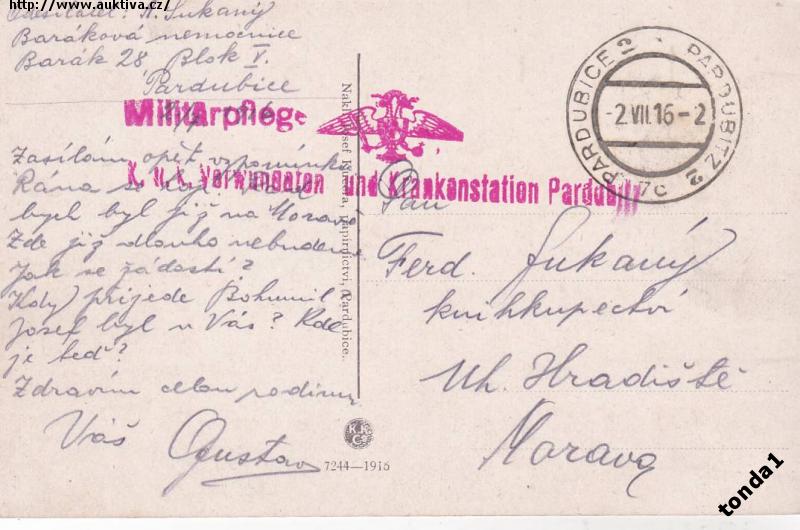 http://www.auktiva.cz/
Odesílatel: A. Šukaný
Baráková nemocnice
Barák 28 Blok V.
Pardubice
Militärpflege
K. u. k. Verwundeten und Krankenstation Pardubitz
PARDUBICE 2 PARDUBITZ 2
-2.VII.16-2
7c
Zasílám opět vzpomínku
Rána se
bych byl již na Moravě
Zde již dlouho nebudeme
Jak se žádostí?
Kdy přijede Bohumil
Josef byl u Vás? Kde
je teď?
Zdravím celou rodinu
Váš Gustav
Nakl. Josef papírnictví, Pardubice.
K.K.
Co
7244—1916
Pan
Ferd. Šukaný
knihkupectví
Uh. Hradiště
Morava
tonda1